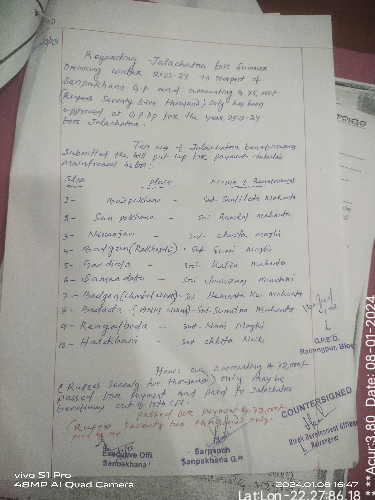 Regarding Jalachatra for Summer
Drinking water 2023-24 in respect of
Sanpakhana G.P and amounting ₹ 75,000/-
(Rupees Seventy five thousand) only has been
approved at G.P.D.P for the year 2023-24
for Jalachatra.
Ten no of Jalachatra beneficiary
Submitted the bill put up for payment detailed
maintioned below:-
Sl.No Place Name of Beneficiary
1 - Baispakhana - Smt. Santilata Mahanta
2 - Sanpakhana - Sri Ramkol mahanta
3 - Niranjan - Sri Chaita Maghi
4 - Badgan (Rakhasahi) - Smt. Suni Maghi
5 - Gandida - Sri. Kalia Mahanta
6 - Sanandata - Sri Janardan Mundari
7 - Badgan (Chandni chowk) - Sri Hemanta Ku. Mahanta
8 - Badada - Smt. Sumitra Mahanta
9 - Rengalbeda - Smt. Nani Maghi
10 - Haldibani - Sri Chhota Naik
Hence an amounting ₹ 72,000/-
(Rupees Seventy two thousand) only may be
passed for payment and paid to Jalachatra
beneficiary out of 15th CFC.
passed for payment ₹ 72,000/-
(Rupees Seventy two thousand) only.
Executive Offi
Sanpakhana
Sarpanch
Sanpakhana G.P
Verified
G.P.E.O.
COUNTERSIGNED
Block Development Officer
vivo S1 Pro
48MP AI Quad Camera
2024.01.08 16:47
Lat:Lon-22.27:86.18
**Acur:3.80 Date: 08-01-2024